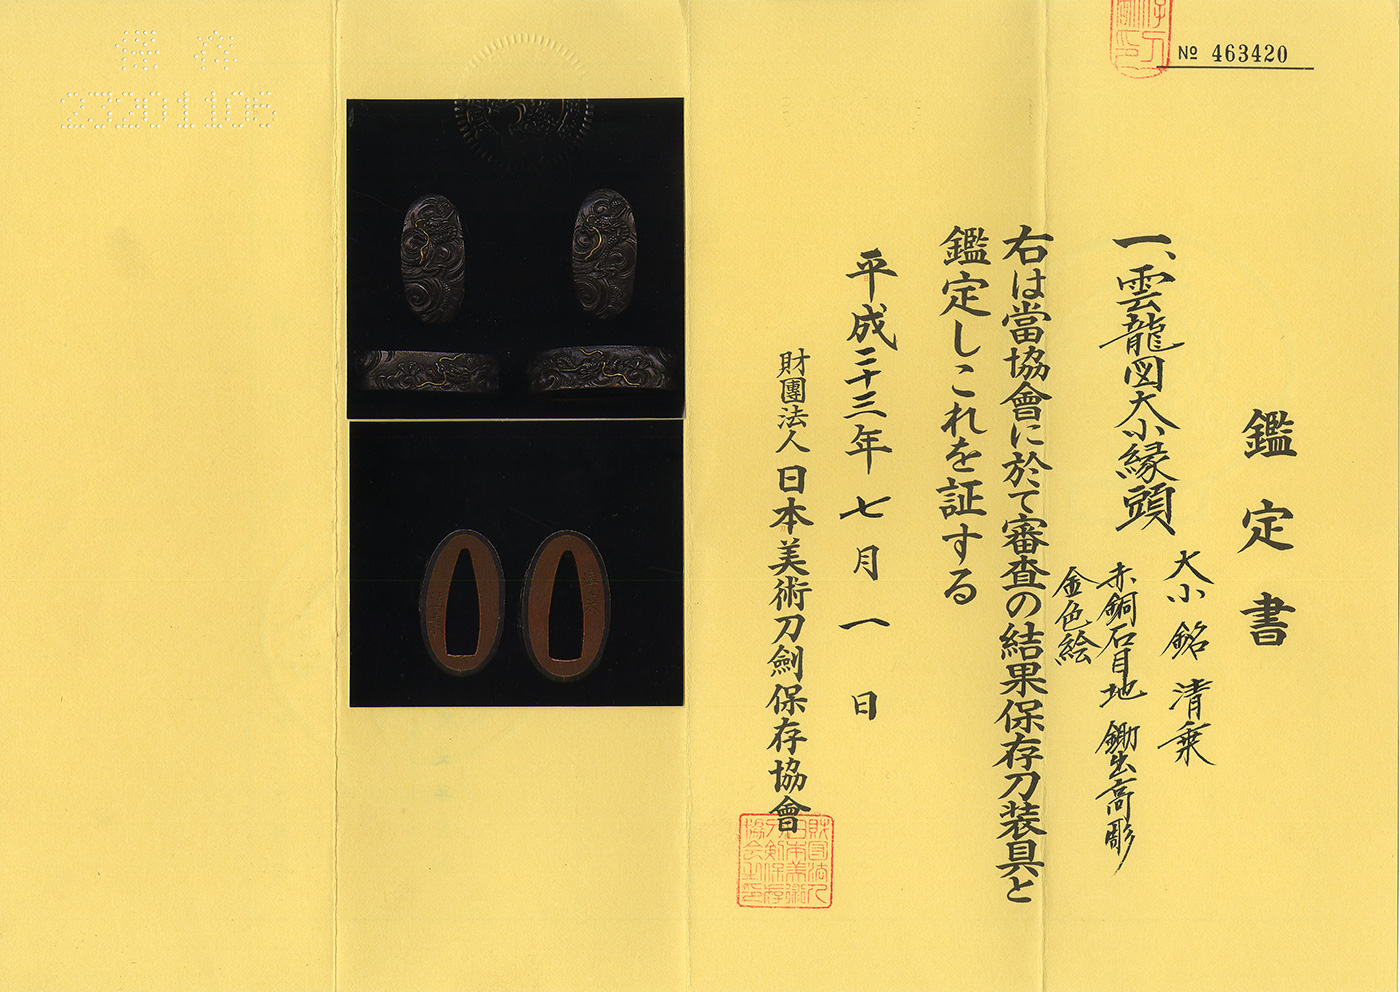 № 463420
鑑定書
一、雲龍図大小縁頭
大小 銘 清乗
赤銅石目地 鋤出高彫
金色絵
右は當協會に於て審査の結果保存刀装具と
鑑定しこれを証する
平成二十三年七月一日
財團法人日本美術刀劍保存協會
保存
23201106